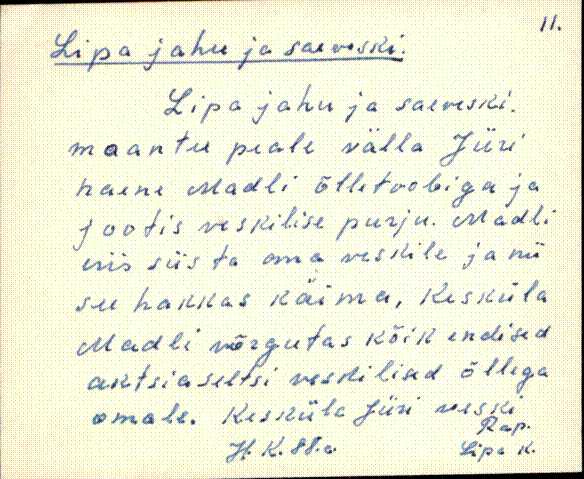 11.
Lipa jahu ja saeveski.
Lipa jahu ja saeveski.
maantee peale välla Jüri
naene Madli õlletoobiga ja
jootis veskilise purju. Madli
viis siis ta oma veskile ja nii
see hakkas käima, Kesküla
Madli võrgutas kõik endised
aktsiaseltsi veskilised õllega
omale. Kesküla Jüri veski
Rap.
H. K. 88.a. Lipa k.